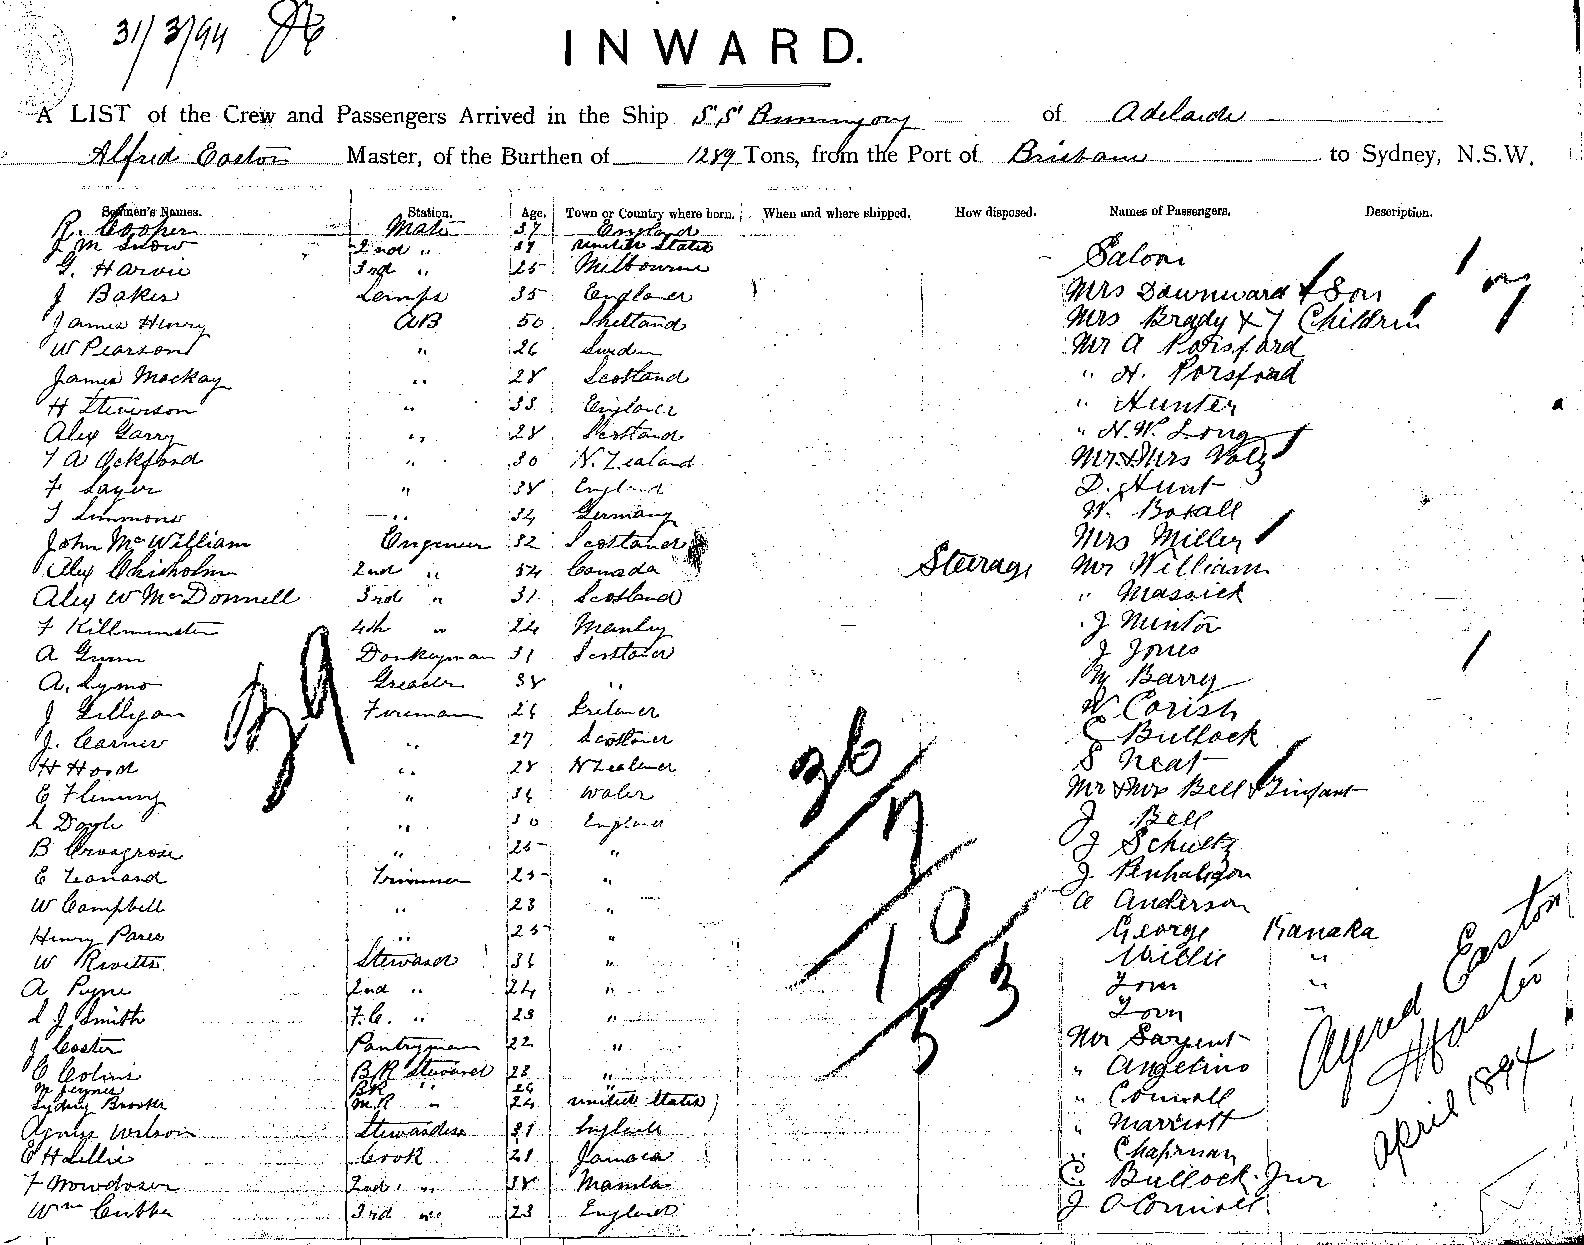 31/3/94
INWARD.
A LIST of the Crew and Passengers Arrived in the Ship S.S. Buninyong of Adelaide
Alfred Easton Master, of the Burthen of 1289 Tons, from the Port of Brisbane to Sydney, N.S.W.
Seamen's Names. Station. Age. Town or Country where born. When and where shipped. How disposed. Names of Passengers. Description.
R. Cooper Mate 37 England
J M Snow 2nd " 39 United States
Saloon
G. Harvie 3rd " 25 Melbourne
J Baker Lamps 35 England Mrs Downward & Son
James Henry AB 50 Shetland Mrs Brady & 7 Children
W Pearson " 26 Sweden Mr A Porsford
James Mackay " 28 Scotland " H. Porsford
H Steverson " 33 England " Hunter
Alex Garry " 28 Scotland " H.W. Long
T A Ockford " 30 N. Zealand Mr & Mrs Volz
F Sayer " 38 England D. Hunt
T Simmons " 34 Germany W. Boxall
John McWilliam Engineer 32 Scotland Mrs Miller
Alex Chisholm 2nd " 34 Canada Steerage Mr William
Alex W McDonnell 3rd " 31 Scotland " Massick
F Killminster 4th " 24 Manly J Mintor
A Gunn Donkeyman 31 Scotland J Jones
A. Symo Greaser 38 " M Barry
J Gillgan Fireman 26 Ireland W Corish
J. Carner " 27 Scotland C Bullock
H Hood " 28 N Zealand S Neat
E Fleming " 34 Wales Mr & Mrs Bell & Infant
L Doyle " 30 England J Bell
B " 25 " J Schultz
E Leonard Trimmer 25 " J Penhaligon
W Campbell " 23 " A Anderson
Henry Pares " 25 " George Kanaka
W Rivetts Steward 36 " Willie "
A Pyne 2nd " 24 " Tom "
L J Smith F.C. " 23 " Tom "
J Coster Pantryman 22 " Mr Sargent
C Colins B.R Steward 28 " " Angelino
BR " 26
Sydney Brooke M.R " 24 United States " Conwell
Agnes Wilson Stewardess 31 England " Marriott
E Hallie Cook 21 Jamaica " Chapman
F 2nd " 38 Manila C. Bullock Jun
Wm Cubba 3rd " 23 England J O'Connell
39
36
7
10
53
Alfred Easton
Master
April 1894